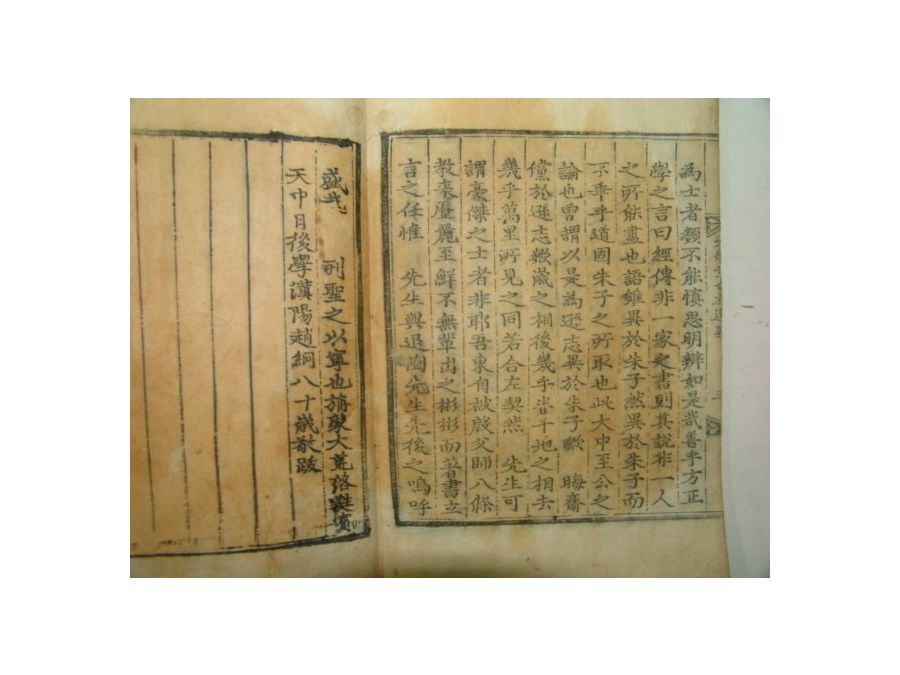 爲士者類不能愼思明辨如是哉善乎方正
學之言曰經傳非一家之書則其說非一人
之所能盡也語雖異於朱子然異於朱子而
不乖乎道固朱子之所取也此大中至公之
論也曾謂以是爲遜志異於朱子歟 晦齋
儻於遜志歟歲之相後幾乎 地之相去
幾乎萬里所見之同若合左契然 先生可
謂豪傑之士者非耶吾東自被殷父師八條
教來歷麗至鮮不無輩出之彬彬而著書立
言之任惟 先生與退陶先生先後之嗚呼
盛哉 列聖之以寧也旃蒙大荒落蕤賓
天中日後學漢陽趙絅八十歲敬跋